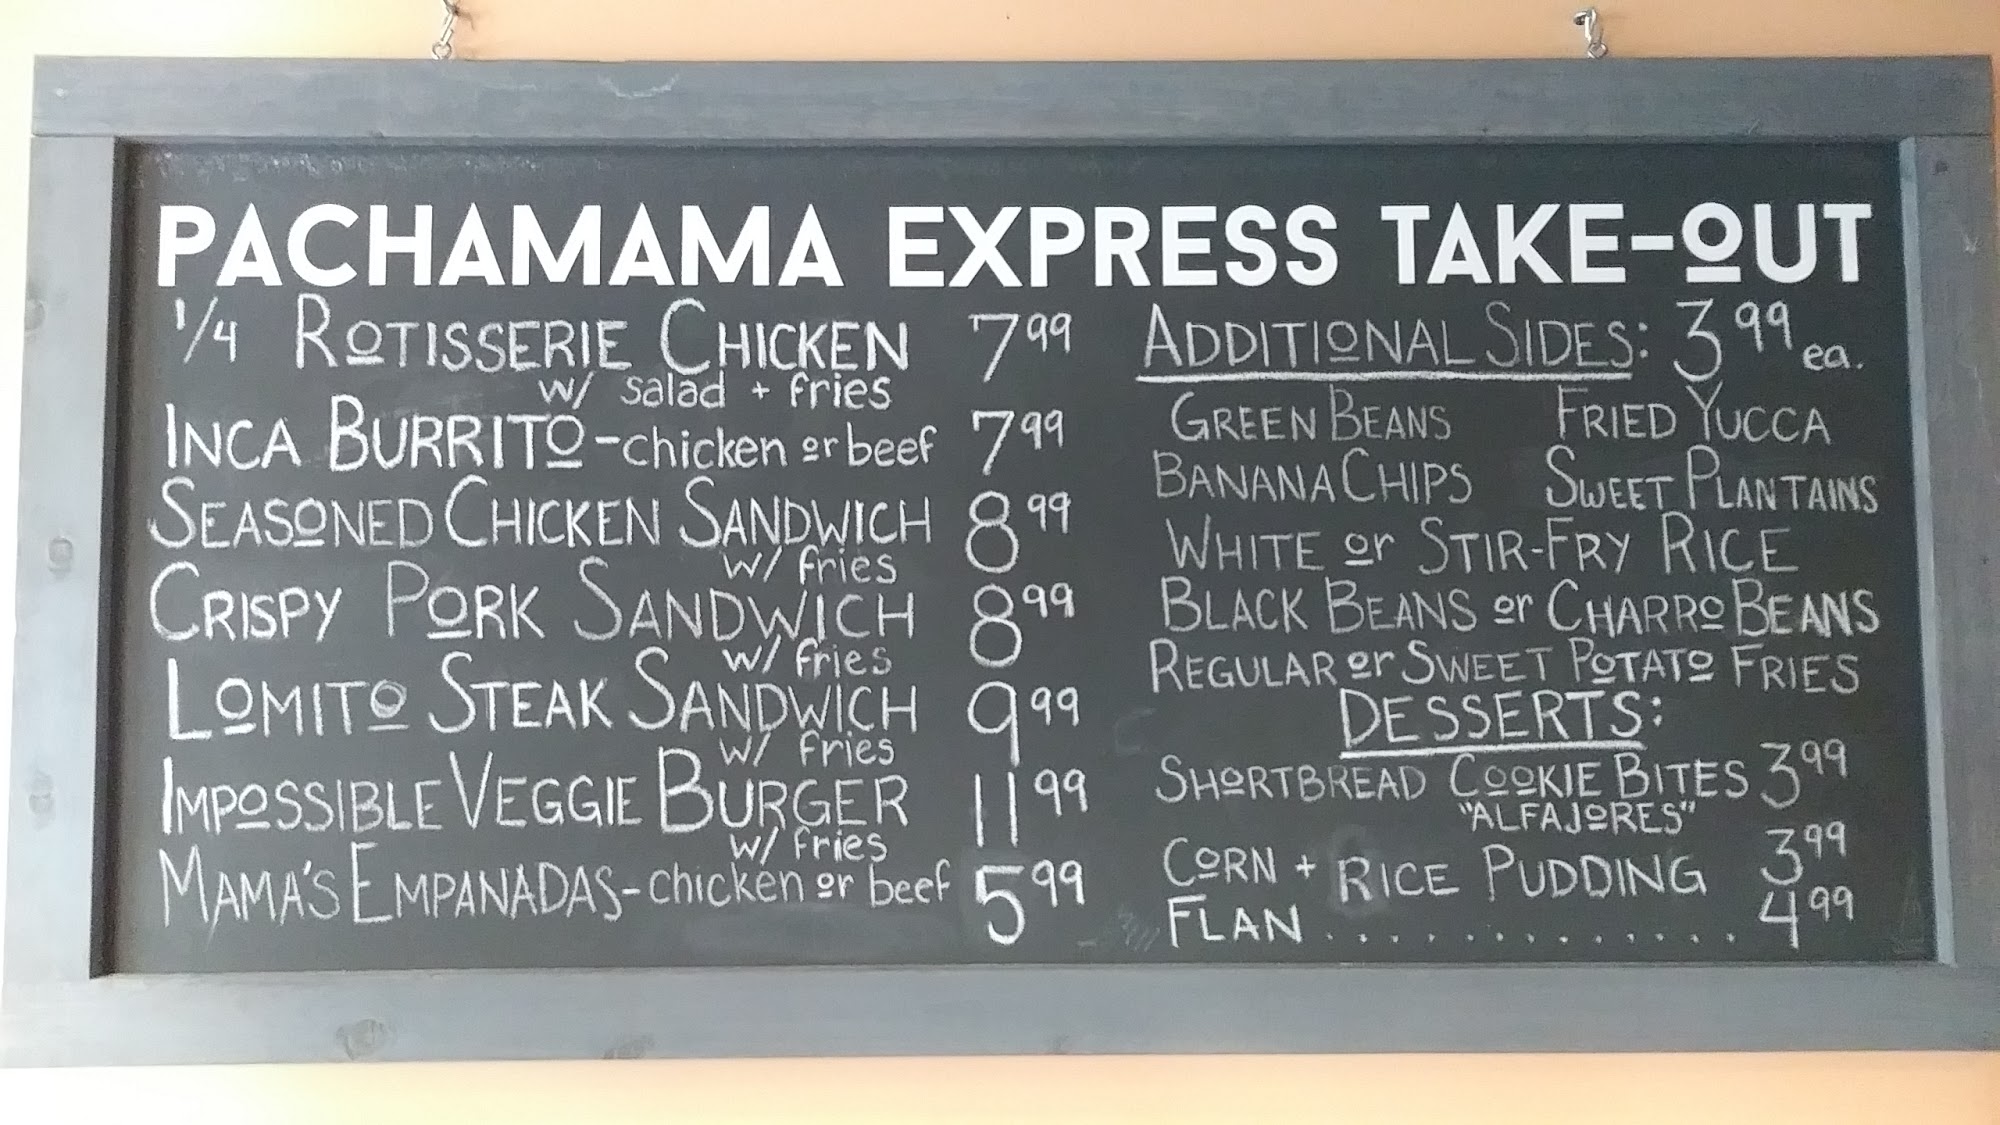 PACHAMAMA EXPRESS TAKE-OUT
1/4 ROTISSERIE CHICKEN 7.99
w/ salad + fries
INCA BURRITO - chicken or beef 7.99
SEASONED CHICKEN SANDWICH 8.99
w/ fries
CRISPY PORK SANDWICH 8.99
w/ fries
LOMITO STEAK SANDWICH 9.99
w/ fries
IMPOSSIBLE VEGGIE BURGER 11.99
w/ fries
MAMA'S EMPANADAS - chicken or beef 5.99
ADDITIONAL SIDES: 3.99 ea.
GREEN BEANS FRIED YUCCA
BANANA CHIPS SWEET PLANTAINS
WHITE or STIR-FRY RICE
BLACK BEANS or CHARRO BEANS
REGULAR or SWEET POTATO FRIES
DESSERTS:
SHORTBREAD COOKIE BITES 3.99
"ALFAJORES"
CORN + RICE PUDDING 3.99
FLAN.............. 4.99